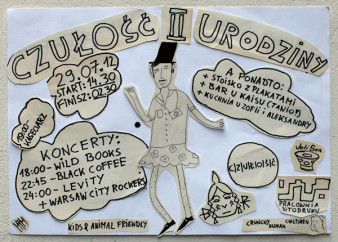 CZUŁOŚĆ II URODZINY
29.07.12
START: 14.30
FINISZ: 02.30
19:00
KONCERTY:
18:00 - WILD BOOKS
22:45 - BLACK COFFEE
24:00 - LEVITY
+ WARSAW CITY ROCKERS
A PONADTO:
+ STOISKO Z PLAKATAMI
+ BAR U KAJSU (TANIO!)
+ KUCHNIA U ZOFII i ALEKSANDRY
C/Z/U/Ł/O/Ś/Ć
PRACOWNIA
SITODRUKU
KIDS & ANIMAL FRIENDLY
BAR
CRUNCHY
HUMAN
CHILDREN